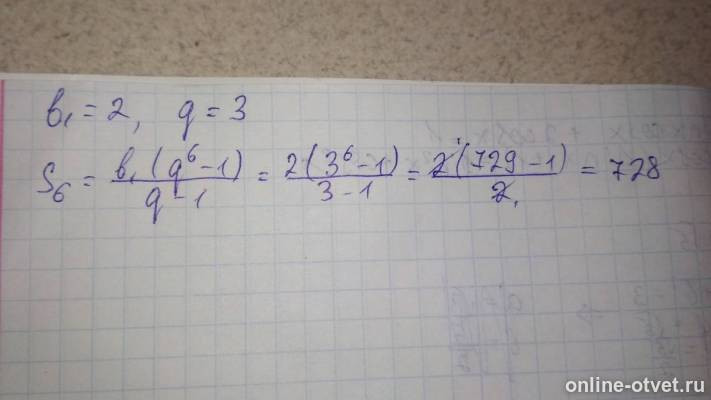 b₁ = 2, q = 3
S₆ = b₁(q⁶-1)/q-1 = 2(3⁶-1)/3-1 = 2(729-1)/2 = 728
online-otvet.ru